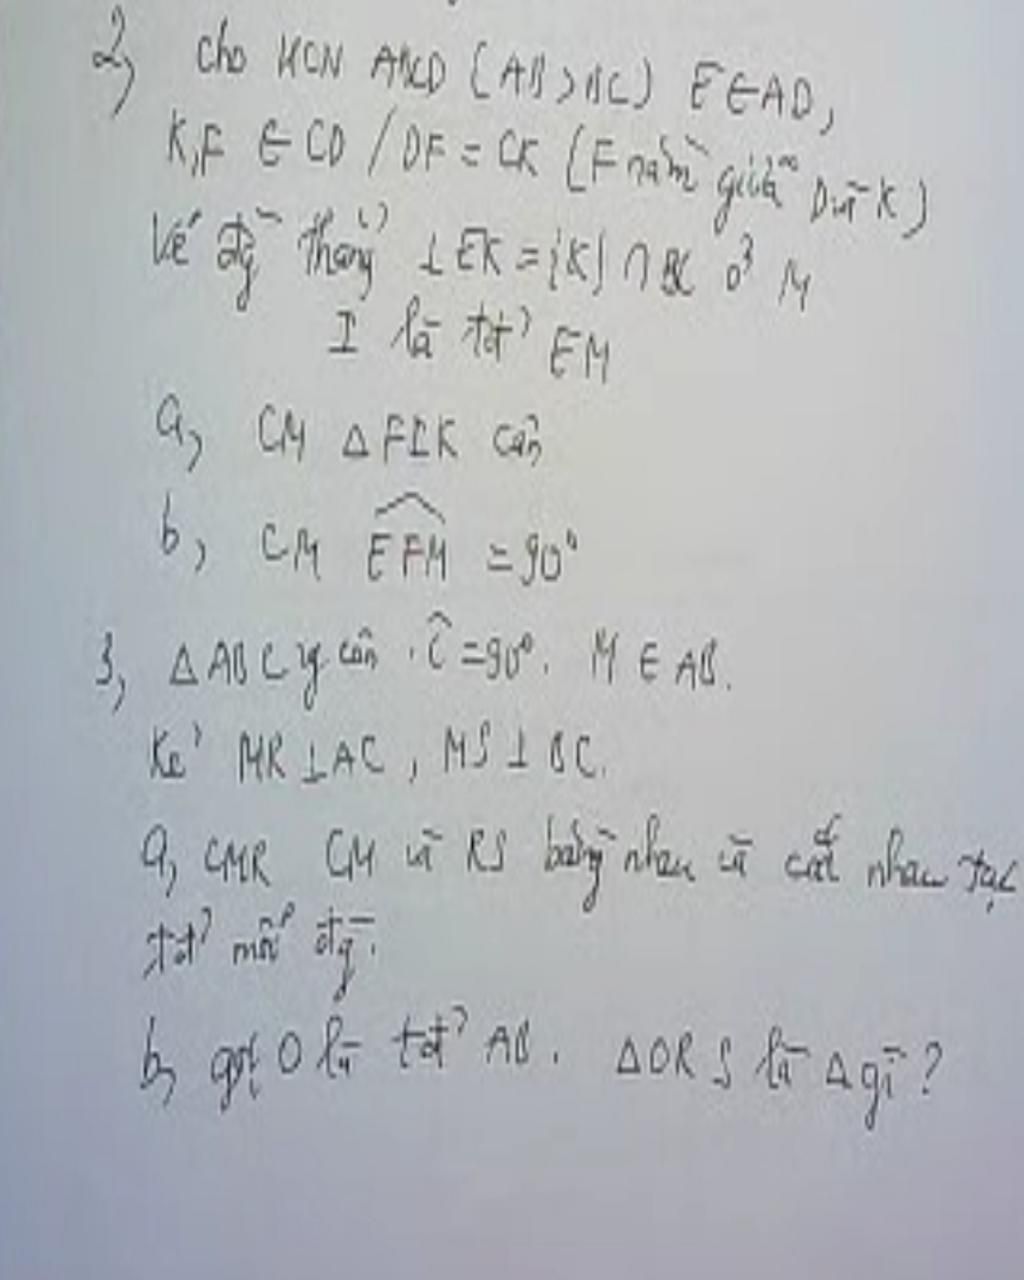 2, Cho HCN ABCD (AB > BC) E ∈ AD,
K,F ∈ CD / DF = CK (F nằm giữa D và K)
Vẽ đg thẳng ⊥ EK = {K} ∩ BC ở M
I là tđ EM
a, CM Δ FIK cân
b, CM \widehat{EFM} = 90°
3, Δ ABC vg cân . Ĉ = 90°. M ∈ AB.
Kẻ MR ⊥ AC, MS ⊥ BC.
a, CMR CM và RS bằng nhau và cắt nhau tại
tđ mỗi đg.
b, gọi O là tđ AB. ΔORS là Δ gì?